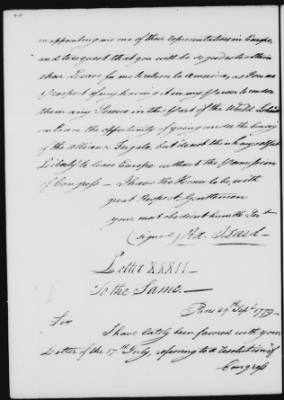 in appointing me one of their representatives in Europe,
and to request that you will be so good as to obtain
their Leave for me to return to America, as I see no
Prospect of my having it in my power to render
them any Service in this part of the World. I should
embrace the opportunity of going under the Convoy
of the Alliance Frigate, but do not think myself at
Liberty to leave Europe without the Permission
of Congress — I have the Honor to be, with
great Respect, Gentlemen
your most obedient humble Servt
(signed) Ra. Izard —
Letter XXXII —
To the Same —
Paris 29th Septr 1779 —
Sir
I have lately been favored with your
Letter of the 17th July, referring to a Resolution of
Congress